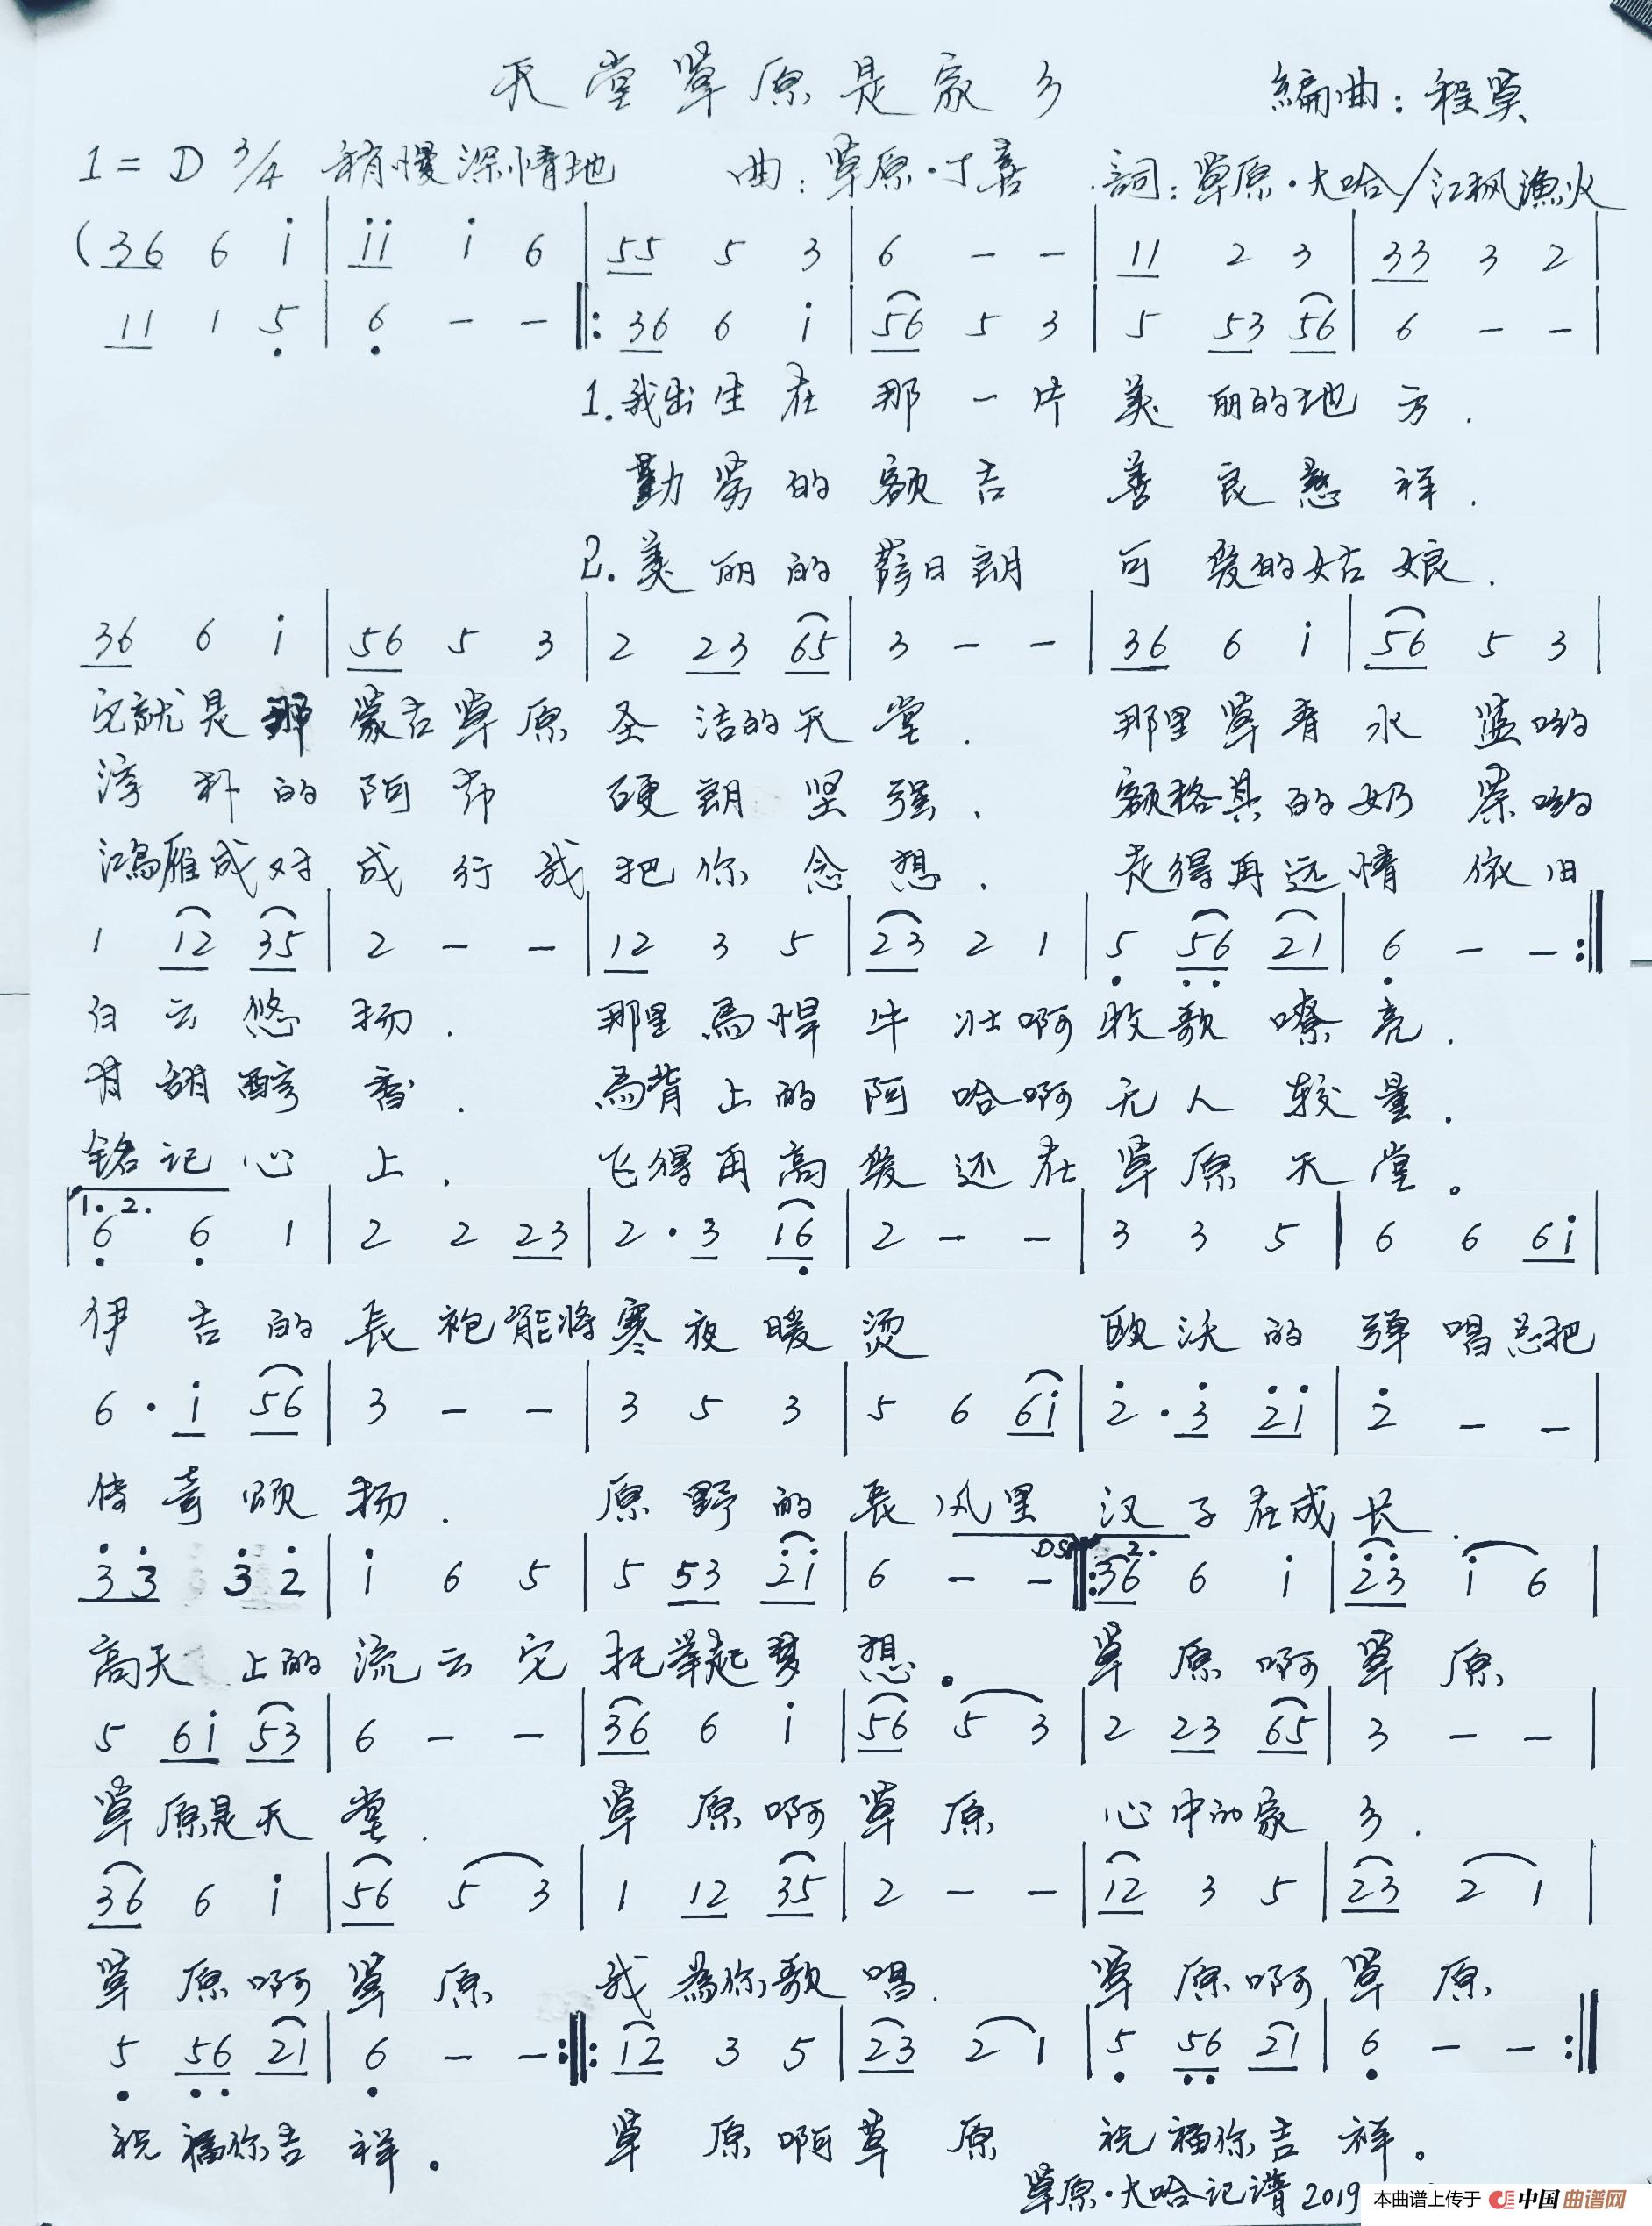 天堂草原是家乡
编曲：程英
1=D 3/4 稍慢深情地 曲：草原·丁喜 詞：草原·大哈/江枫漁火
(36 6 i | ii i 6 | 55 5 3 | 6 - - | 11 2 3 | 33 3 2 |
11 1 5 | 6 - - ‖: 36 6 i | 56 5 3 | 5 53 56 | 6 - - |
1.我出生在那一片美丽的地方.
勤劳的额吉善良慈祥.
2.美丽的萨日朗可爱的姑娘.
36 6 i | 56 5 3 | 2 23 65 | 3 - - | 36 6 i | 56 5 3 |
它就是那蒙古草原圣洁的天堂. 那里草青水蓝哟
淳朴的阿布硬朗坚强. 额格其的奶茶哟
鸿雁成对成行我把你念想. 走得再远情依旧
1 12 35 | 2 - - | 12 3 5 | 23 2 1 | 5 56 21 | 6 - - :‖
白云悠扬. 那里馬悍牛壮啊牧歌嘹亮.
甘甜醇香. 馬背上的阿哈啊无人较量.
铭记心上. 飞得再高爱还在草原天堂。
1. 2.
6 6 1 | 2 2 23 | 2·3 16 | 2 - - | 3 3 5 | 6 6 6i |
伊吉的長袍能将寒夜暖烫 欧沃的弹唱总把
6·i 56 | 3 - - | 3 5 3 | 5 6 6i | 2·3 2i | 2 - - |
传奇颂扬. 原野的長风里汉子在成长.
DS 2.
33 32 | i 6 5 | 5 53 2i | 6 - - ‖: 36 6 i | 23 i 6 |
高天上的流云它托举起梦想。 草原啊草原
5 6i 53 | 6 - - | 36 6 i | 56 5 3 | 2 23 65 | 3 - - |
草原是天堂. 草原啊草原心中的家乡.
36 6 i | 56 5 3 | 1 12 35 | 2 - - | 12 3 5 | 23 2 1 |
草原啊草原我為你歌唱. 草原啊草原
5 56 21 | 6 - - :‖: 12 3 5 | 23 2 1 | 5 56 21 | 6 - - :‖
祝福你吉祥。 草原啊草原祝福你吉祥。
草原·大哈记谱 2019
本曲谱上传于 中国曲谱网